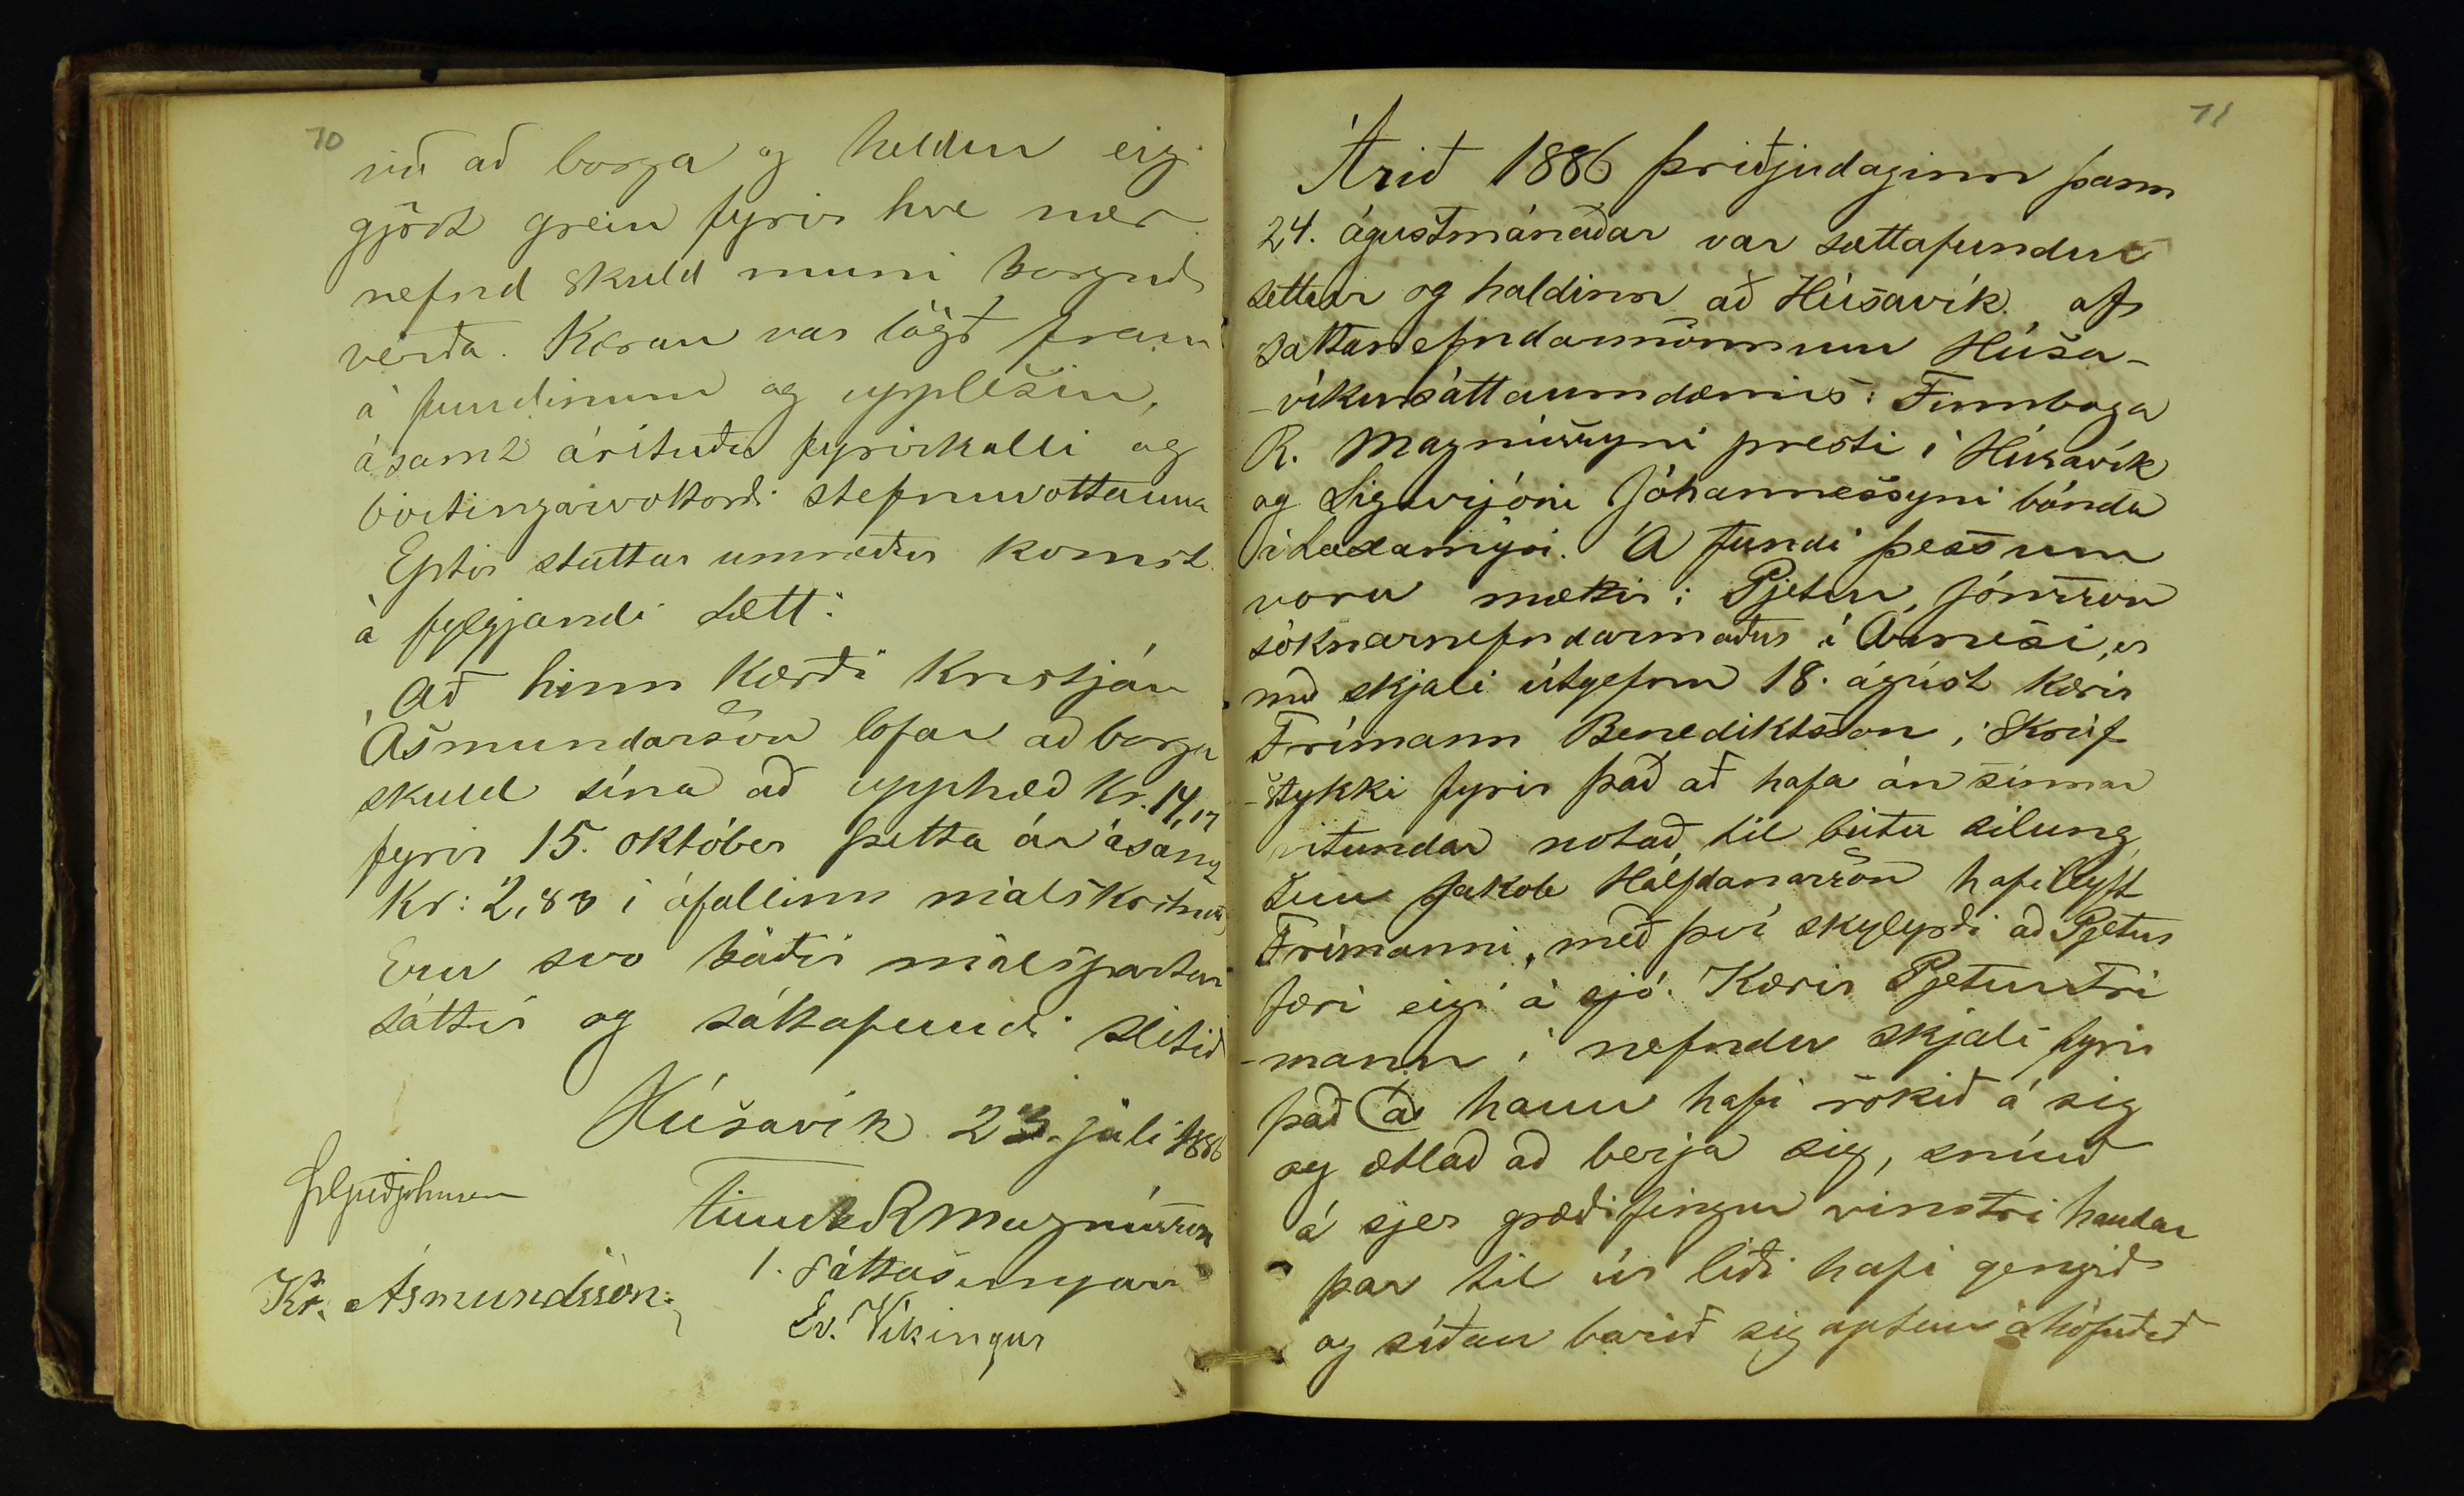 70
nú að borga og heldur eigi
gjört grein fyrir hve nær
nefnd skuld muni borguð
verða. Kæran var lögð fram
á fundinum og upplesin,
ásamt árituðu fyrirkalli og
birtingarvottorði stefnuvottanna
Eptir stuttar umræður komst
á fylgjandi sætt:
Að hinn kærði Kristján
Ásmundarson lofar að borga
skuld sína að upphæð Kr. 14,17
fyrir 15. október þetta ár ásamt
Kr: 2,83 í áfallinn málskostnað
Eru svo báðir málspartar
sáttir og sáttafundi slitið
Húsavík 23. júlí 1886
Þ Guðjohnsen
Finnb R Magnússon
1. sáttasemjari
Kr. Ásmundsson.
Sv. Víkingur
71
Árið 1886 þriðjudaginn þann
24. ágústmánaðar var sættafundur
settur og haldinn að Húsavík af
sáttanefndarmönnum Húsa-
-víkursáttaumdæmis: Finnboga
R. Magnússyni presti í Húsavík
og Sigurjóni Jóhannessyni bónda
í Laxamýri. Á fundi þessum
voru mættir: Pjetur Jónsson
sóknarnefndarmaður í Árnesi, er
með skjali útgefnu 18. ágúst kærir
Frímann Benediktsson, í Skrúf
-stykki fyrir það að hafa án sinnar
vitundar notað til beitu silung
sem Jakob Hálfdanarson hafi lyft
Frímanni, með því skylyrði að Pjetur
færi eigi á sjó. Kærir Pjetur Frí
-mann í nefndu skjali fyrir
það að hann hafi rokið á sig
og ætlað að berja sig, snúið
á sjer græðifingur vinstri handar
þar til úr liði hafi gengið
og síðan barið sig aptan á höfuðið